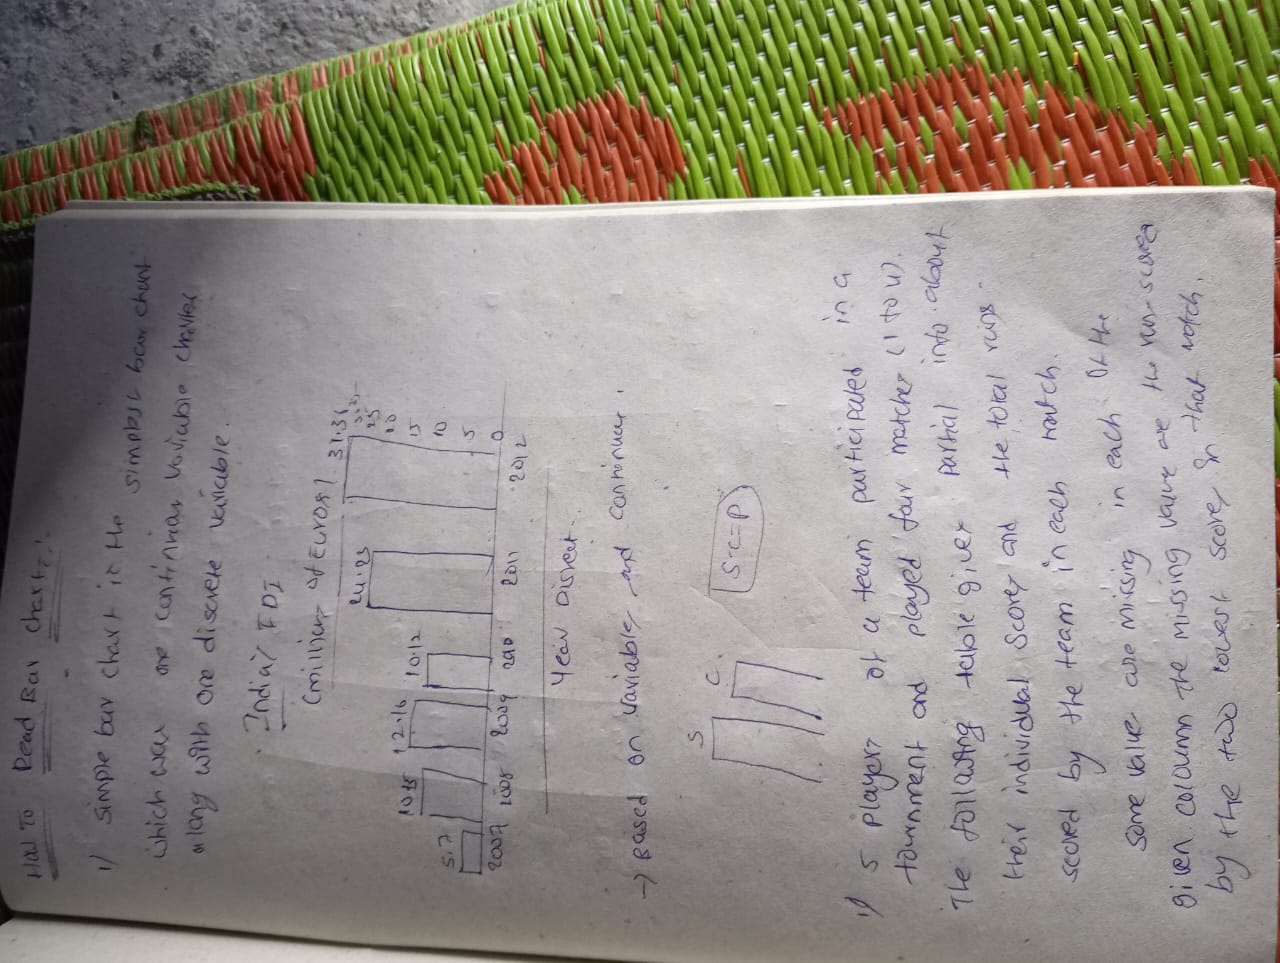 How To Read Bar Charts:
1) Simple bar chart is the simplest bar chart
which was one continues variable charles
along with one discrete variable.
India's FDI
(million of Euros)
31.36
25
20
15
10
5
0
5.7
12.16
10.12
2007
2008
2009
2010
2011
2012
Year Discret
→ Based on Variables and continuer.
S C
S-C=P
1) 5 players of a team participated in a
tournment and played four matcher (1 to 4).
The following table giver partial into about
their individual Scores and the total runs.
scored by the team in each match.
Some value are missing in each of the
given coloumn the missing value are the run-scores
by the two lowest scores in that match.